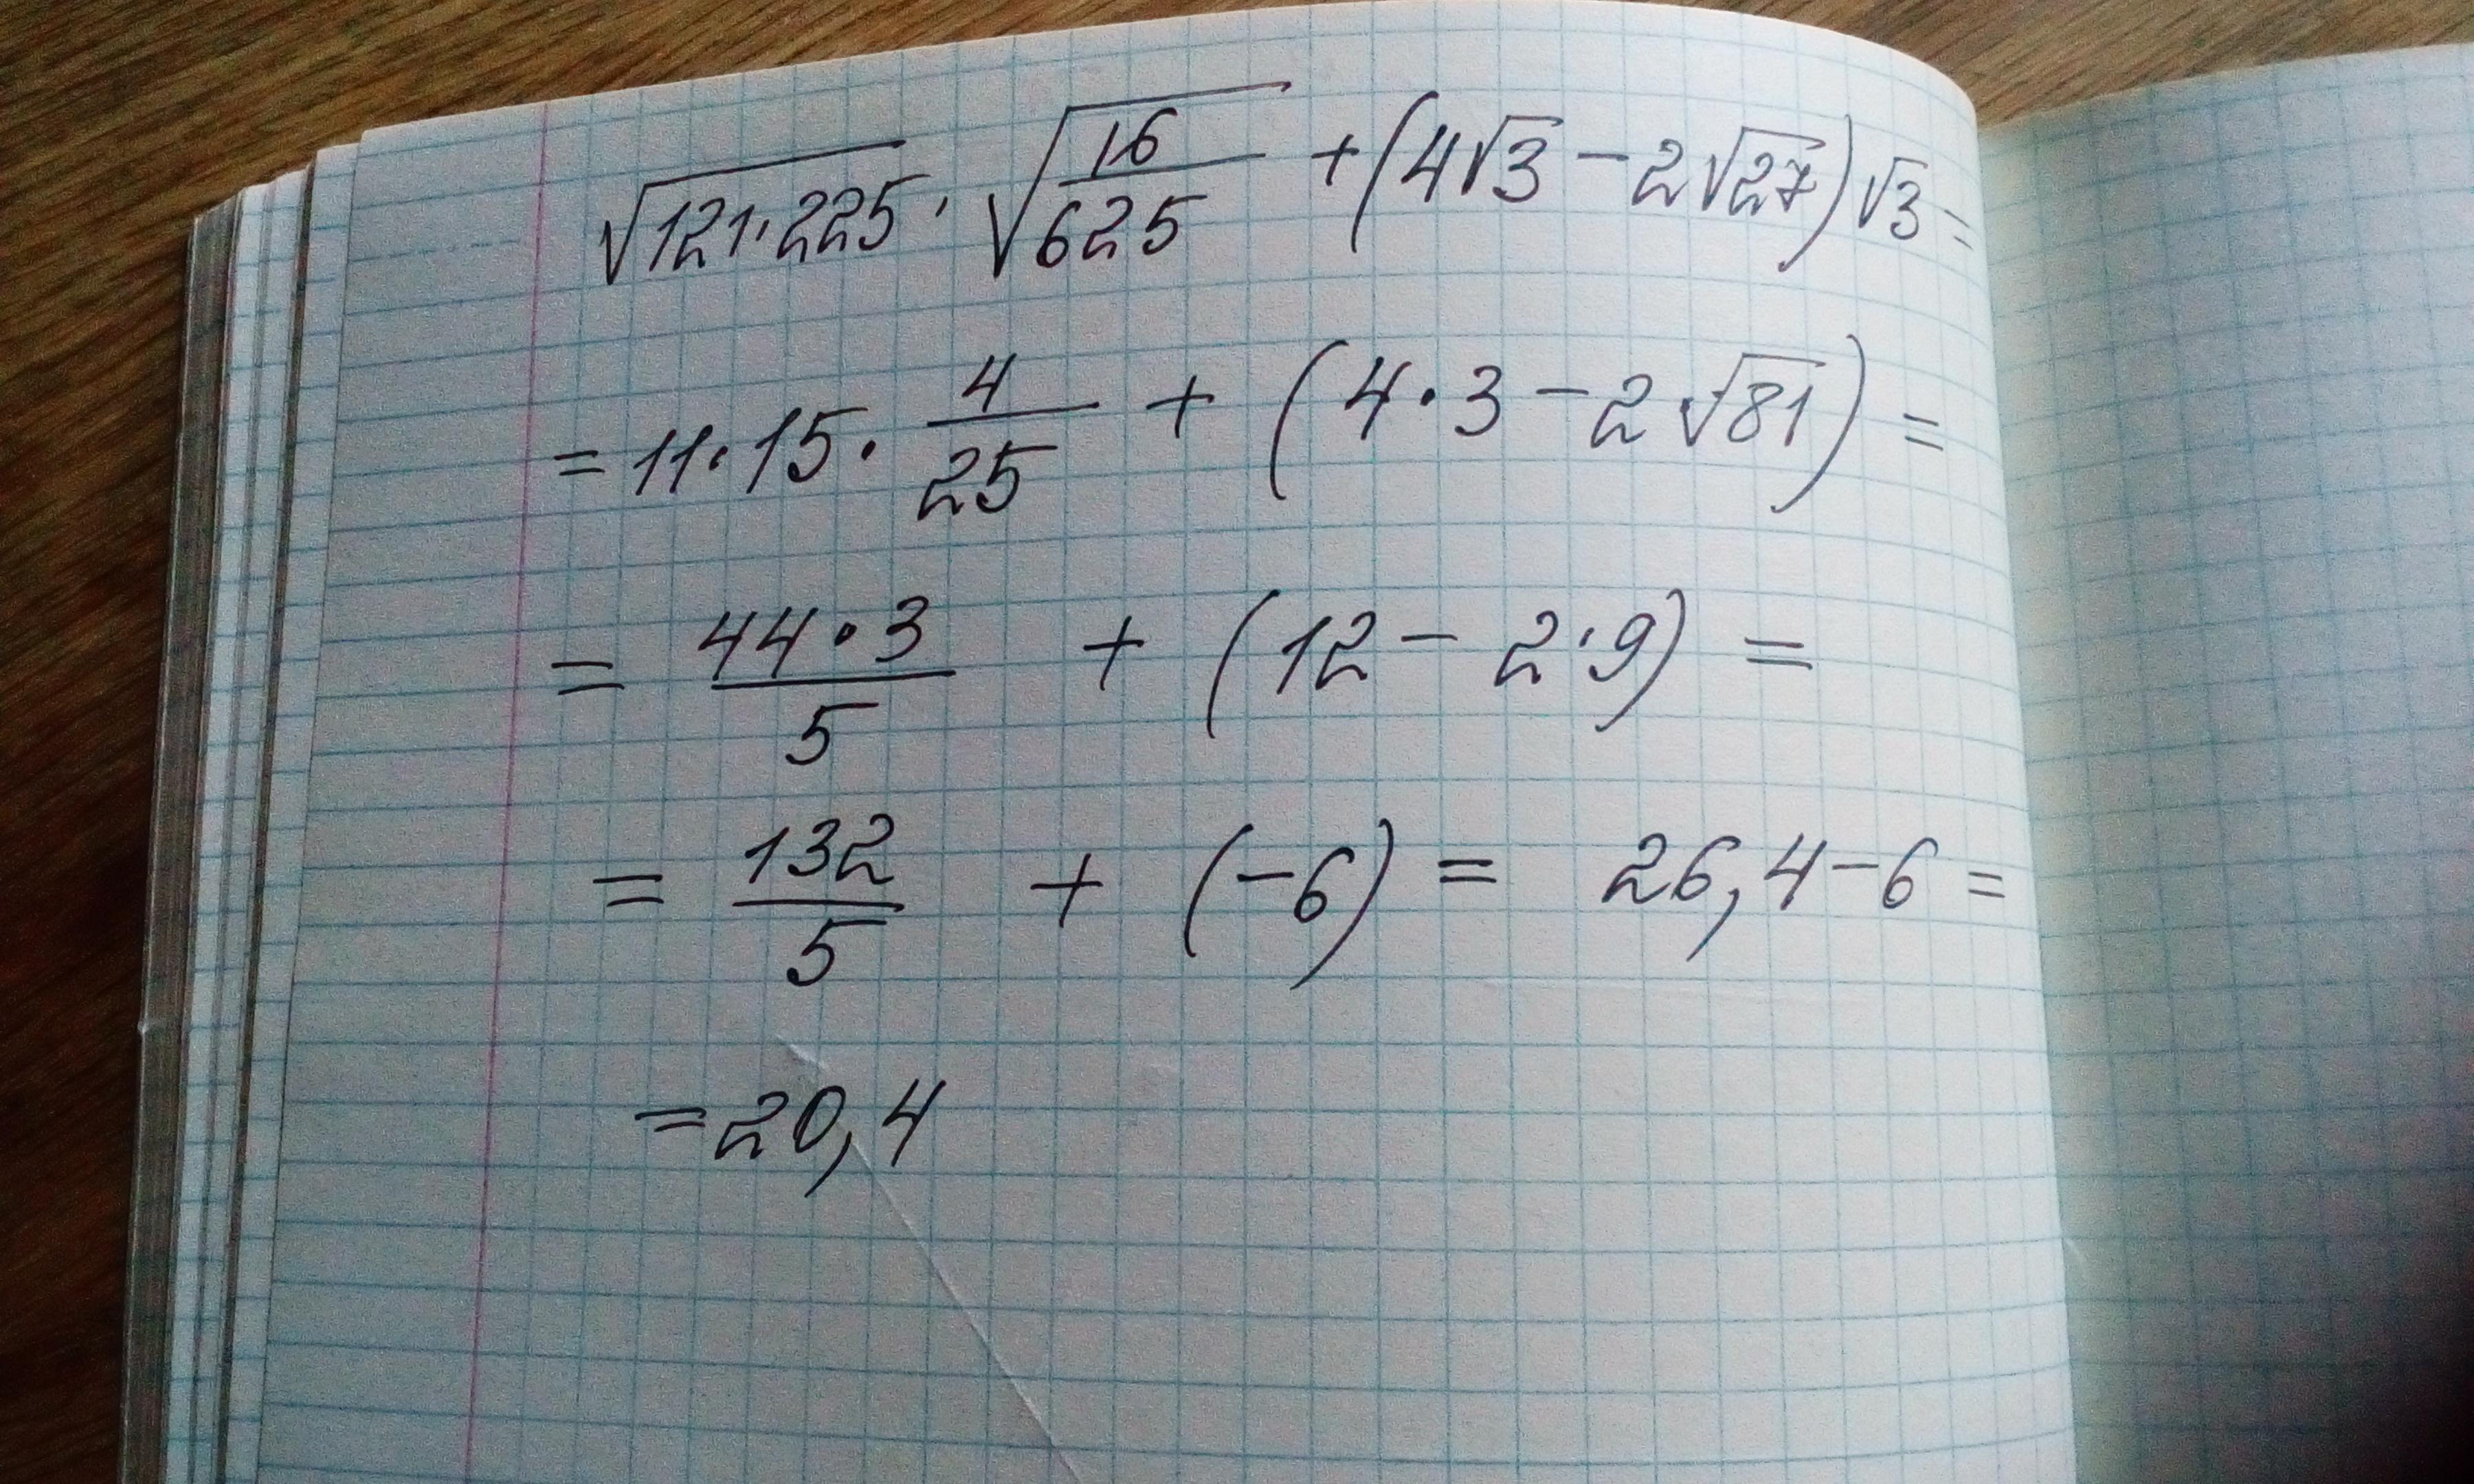 √(121·225) · √(16/625) + (4√3 − 2√27)√3 =
= 11·15· 4/25 + (4·3 − 2√81) =
= 44·3/5 + (12 − 2·9) =
= 132/5 + (−6) = 26,4 − 6 =
= 20,4